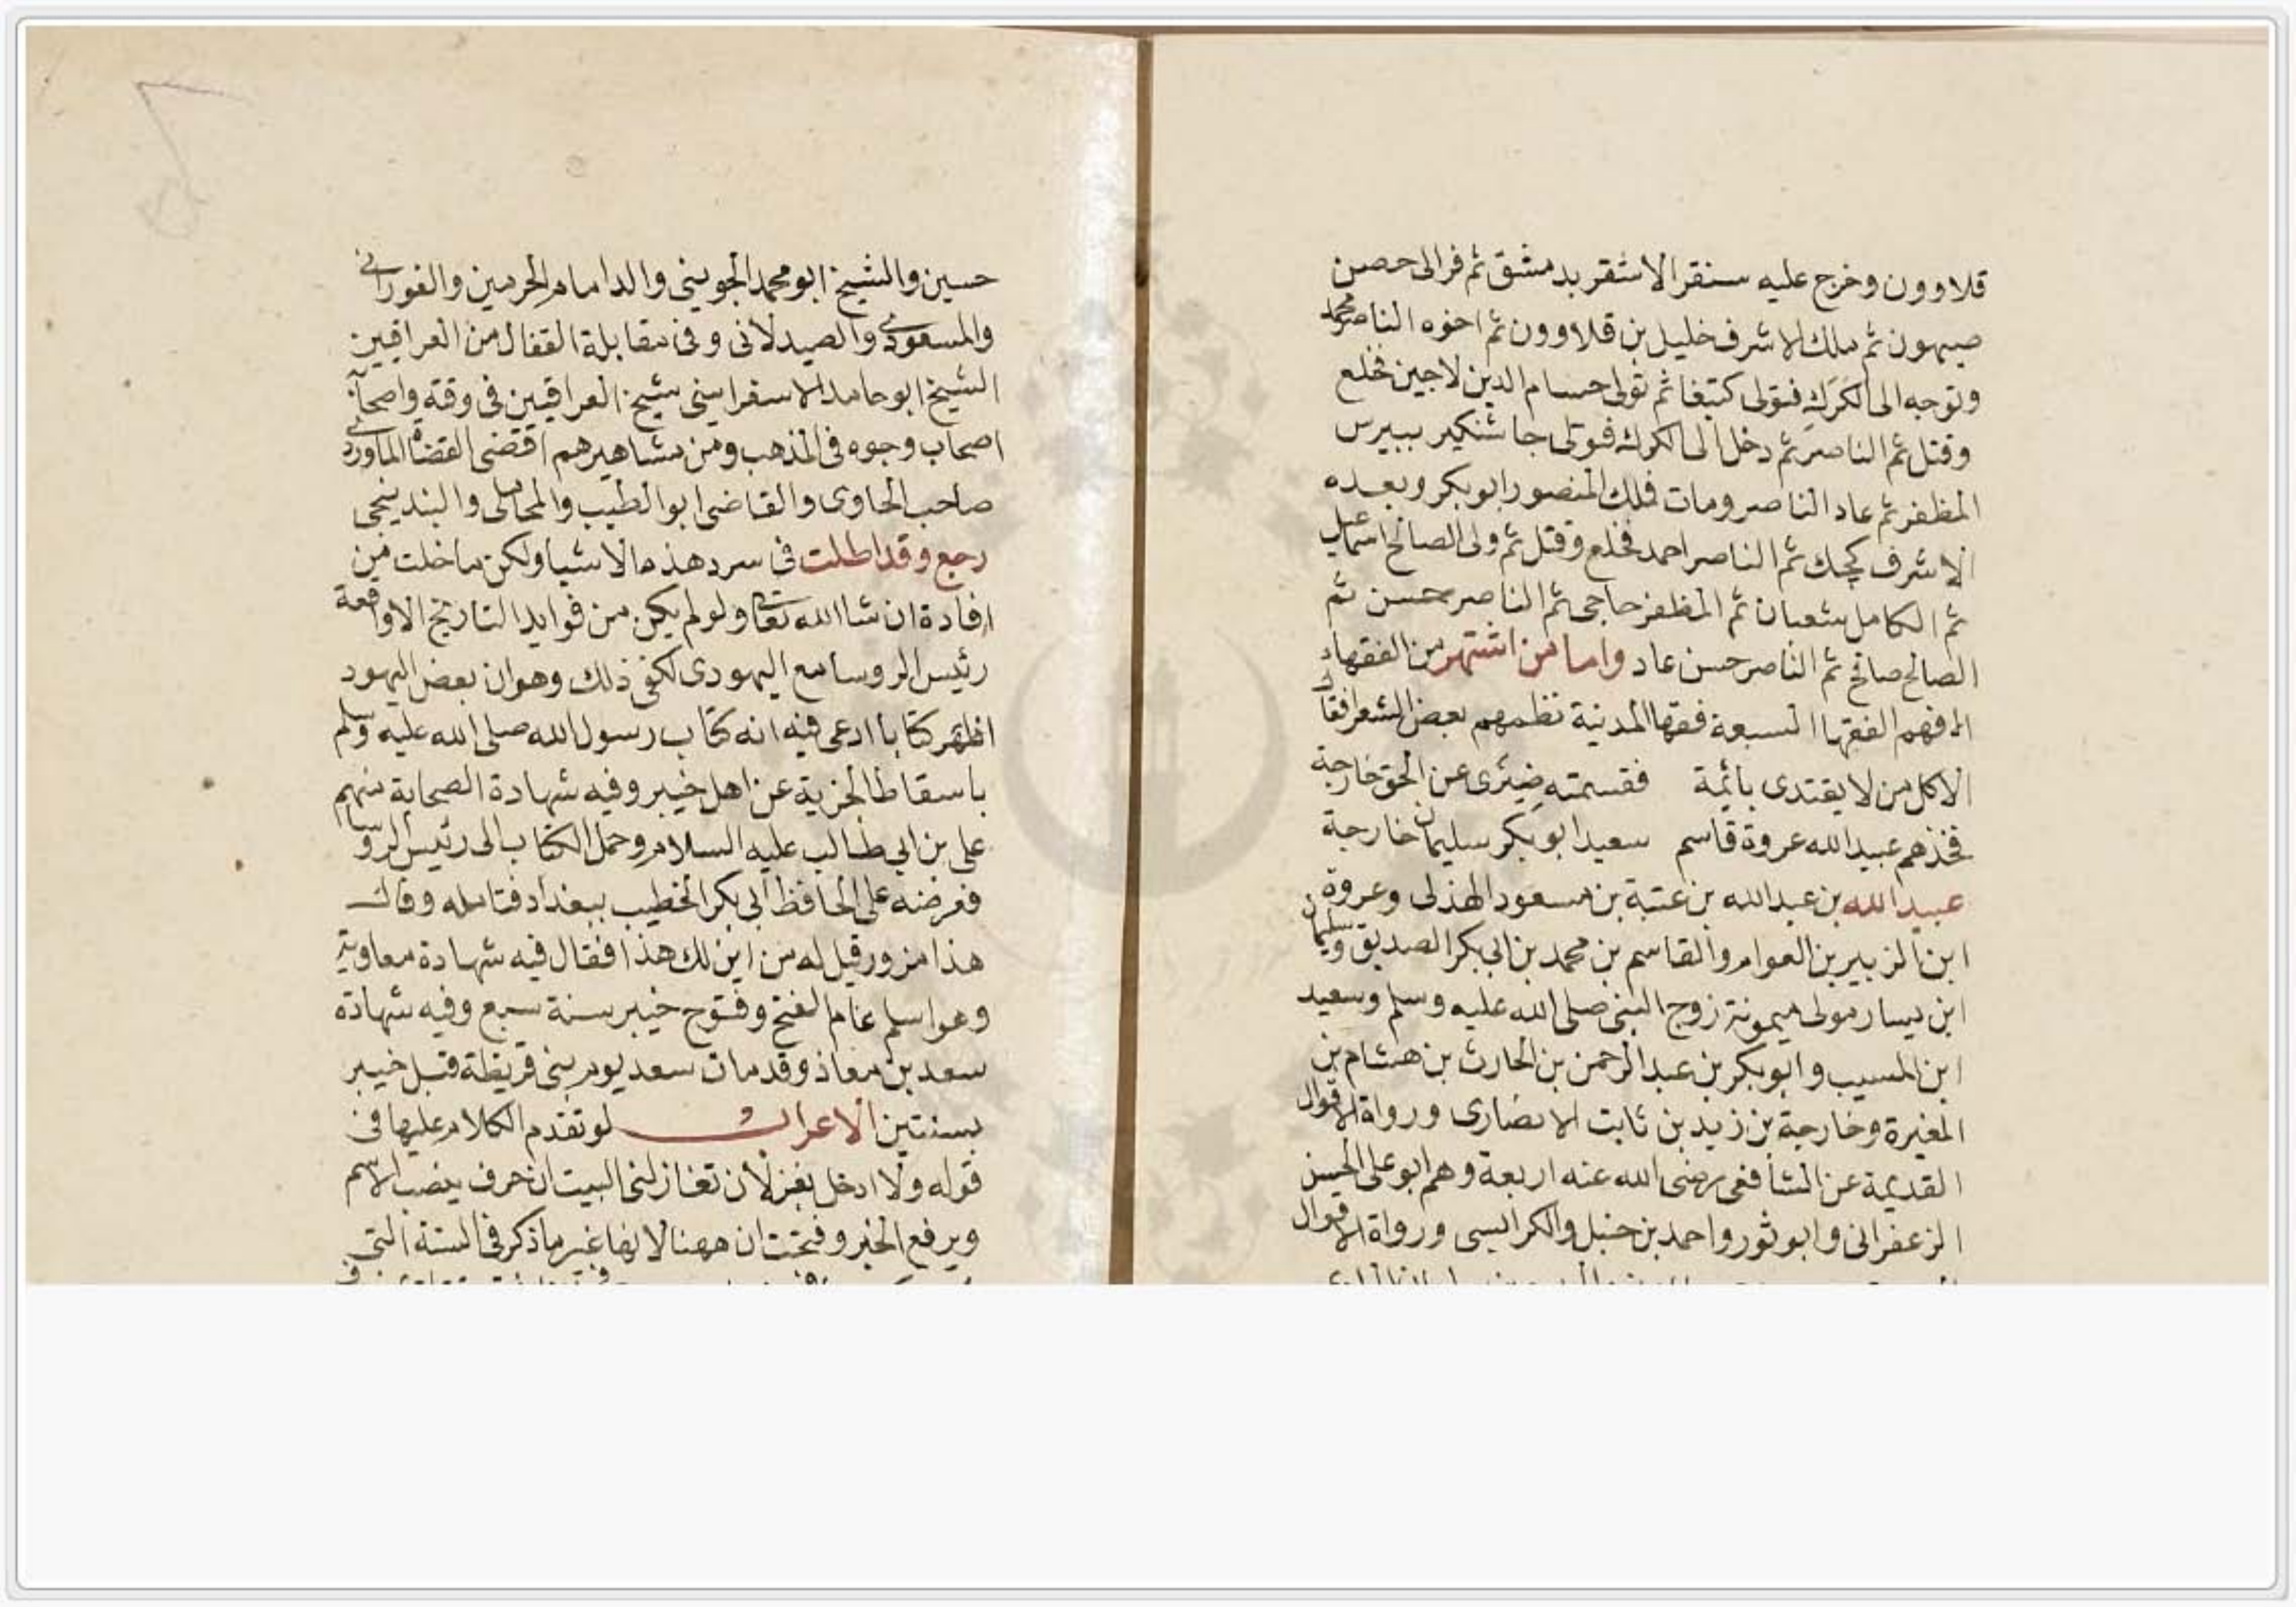 قلاوون وخرج عليه سنقر الاشقر بدمشق ثم فر الى حصن
صيهون ثم ملك الاشرف خليل بن قلاوون ثم اخوه الناصر محمد
وتوجه الى الكرك فتولى كتبغا ثم تولى حسام الدين لاجين فخلع
وقتل ثم الناصر ثم دخل الى الكرك فتولى جاشنكير بيبرس
المظفر ثم عاد الناصر ومات فملك المنصور ابو بكر وبعده
الاشرف كجك ثم الناصر احمد فخلع وقتل ثم ولى الصالح اسمعيل
ثم الكامل شعبان ثم المظفر حاجى ثم الناصر حسن ثم
الصالح صالح ثم الناصر حسن عاد واما من اشتهر من الفقهاء
فهم الفقها السبعة فقها المدينة نظمهم بعض الشعرا فقال
الا كل من لا يقتدى بائمة فقسمته ضيزى عن الحق خارجة
فخذهم عبيد الله عروة قاسم سعيد ابو بكر سليمان خارجة
عبيد الله بن عبد الله بن عتبة بن مسعود الهذلى وعروة
ابن الزبير بن العوام والقاسم بن محمد بن ابى بكر الصديق وسليمان
ابن يسار مولى ميمونة زوج النبى صلى الله عليه وسلم وسعيد
ابن المسيب وابو بكر بن عبد الرحمن بن الحارث بن هشام بن
المغيرة وخارجة بن زيد بن ثابت الانصارى ورواة الاقوال
القديمة عن الشافعى رضى الله عنه اربعة وهم ابو على الحسن
الزعفرانى وابو ثور واحمد بن حنبل والكرابيسى ورواة الاقوال
حسين والشيخ ابو محمد الجوينى والد امام الحرمين والفورانى
والمسعودى والصيدلانى وفى مقابلة القفال من العراقيين
الشيخ ابو حامد الاسفراينى شيخ العراقيين فى وقته واصحابه
اصحاب وجوه فى المذهب ومن مشاهيرهم اقضى القضاة الماوردى
صاحب الحاوى والقاضى ابو الطيب والمحاملى والبندنيجى
رجع وقد اطلت فى سرد هذه الاشيا ولكن ما خلت من
افادة ان شا الله تعالى ولو لم يكن من فوايد التاريخ الا واقعة
رئيس الروسا مع اليهودى لكفى ذلك وهو ان بعض اليهود
اظهر كتابا ادعى فيه انه كتاب رسول الله صلى الله عليه وسلم
باسقاط الجزية عن اهل خيبر وفيه شهادة الصحابة منهم
على بن ابى طالب عليه السلام وحمل الكتاب الى رئيس الروسا
فعرضه على الحافظ ابى بكر الخطيب ببغداد فتامله وقال
هذا مزور قيل له من اين لك هذا فقال فيه شهادة معاوية
وهو اسلم عام الفتح وفتوح خيبر سنة سبع وفيه شهادة
سعد بن معاذ وقد مات سعد يوم بنى قريظة قبل خيبر
بسنتين الاعراب لو تقدم الكلام عليها فى
قوله ولا ادخل بغزلان تغازلنى البيت ان حرف ينصب الاسم
ويرفع الخبر وفتحت ان ههنا لانها غير ما ذكر فى الستة التى